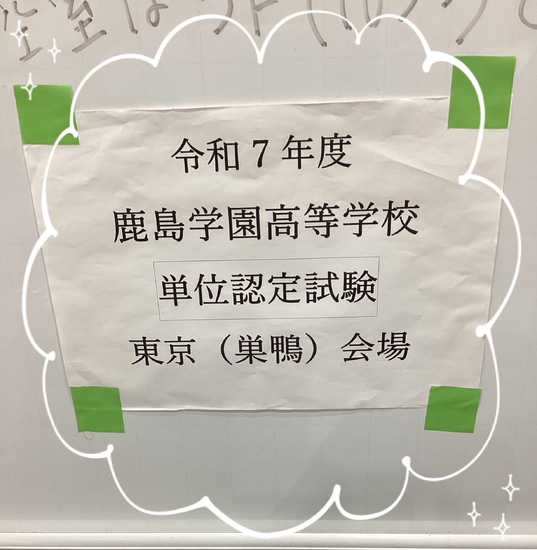 令和7年度
鹿島学園高等学校
単位認定試験
東京（巣鴨）会場